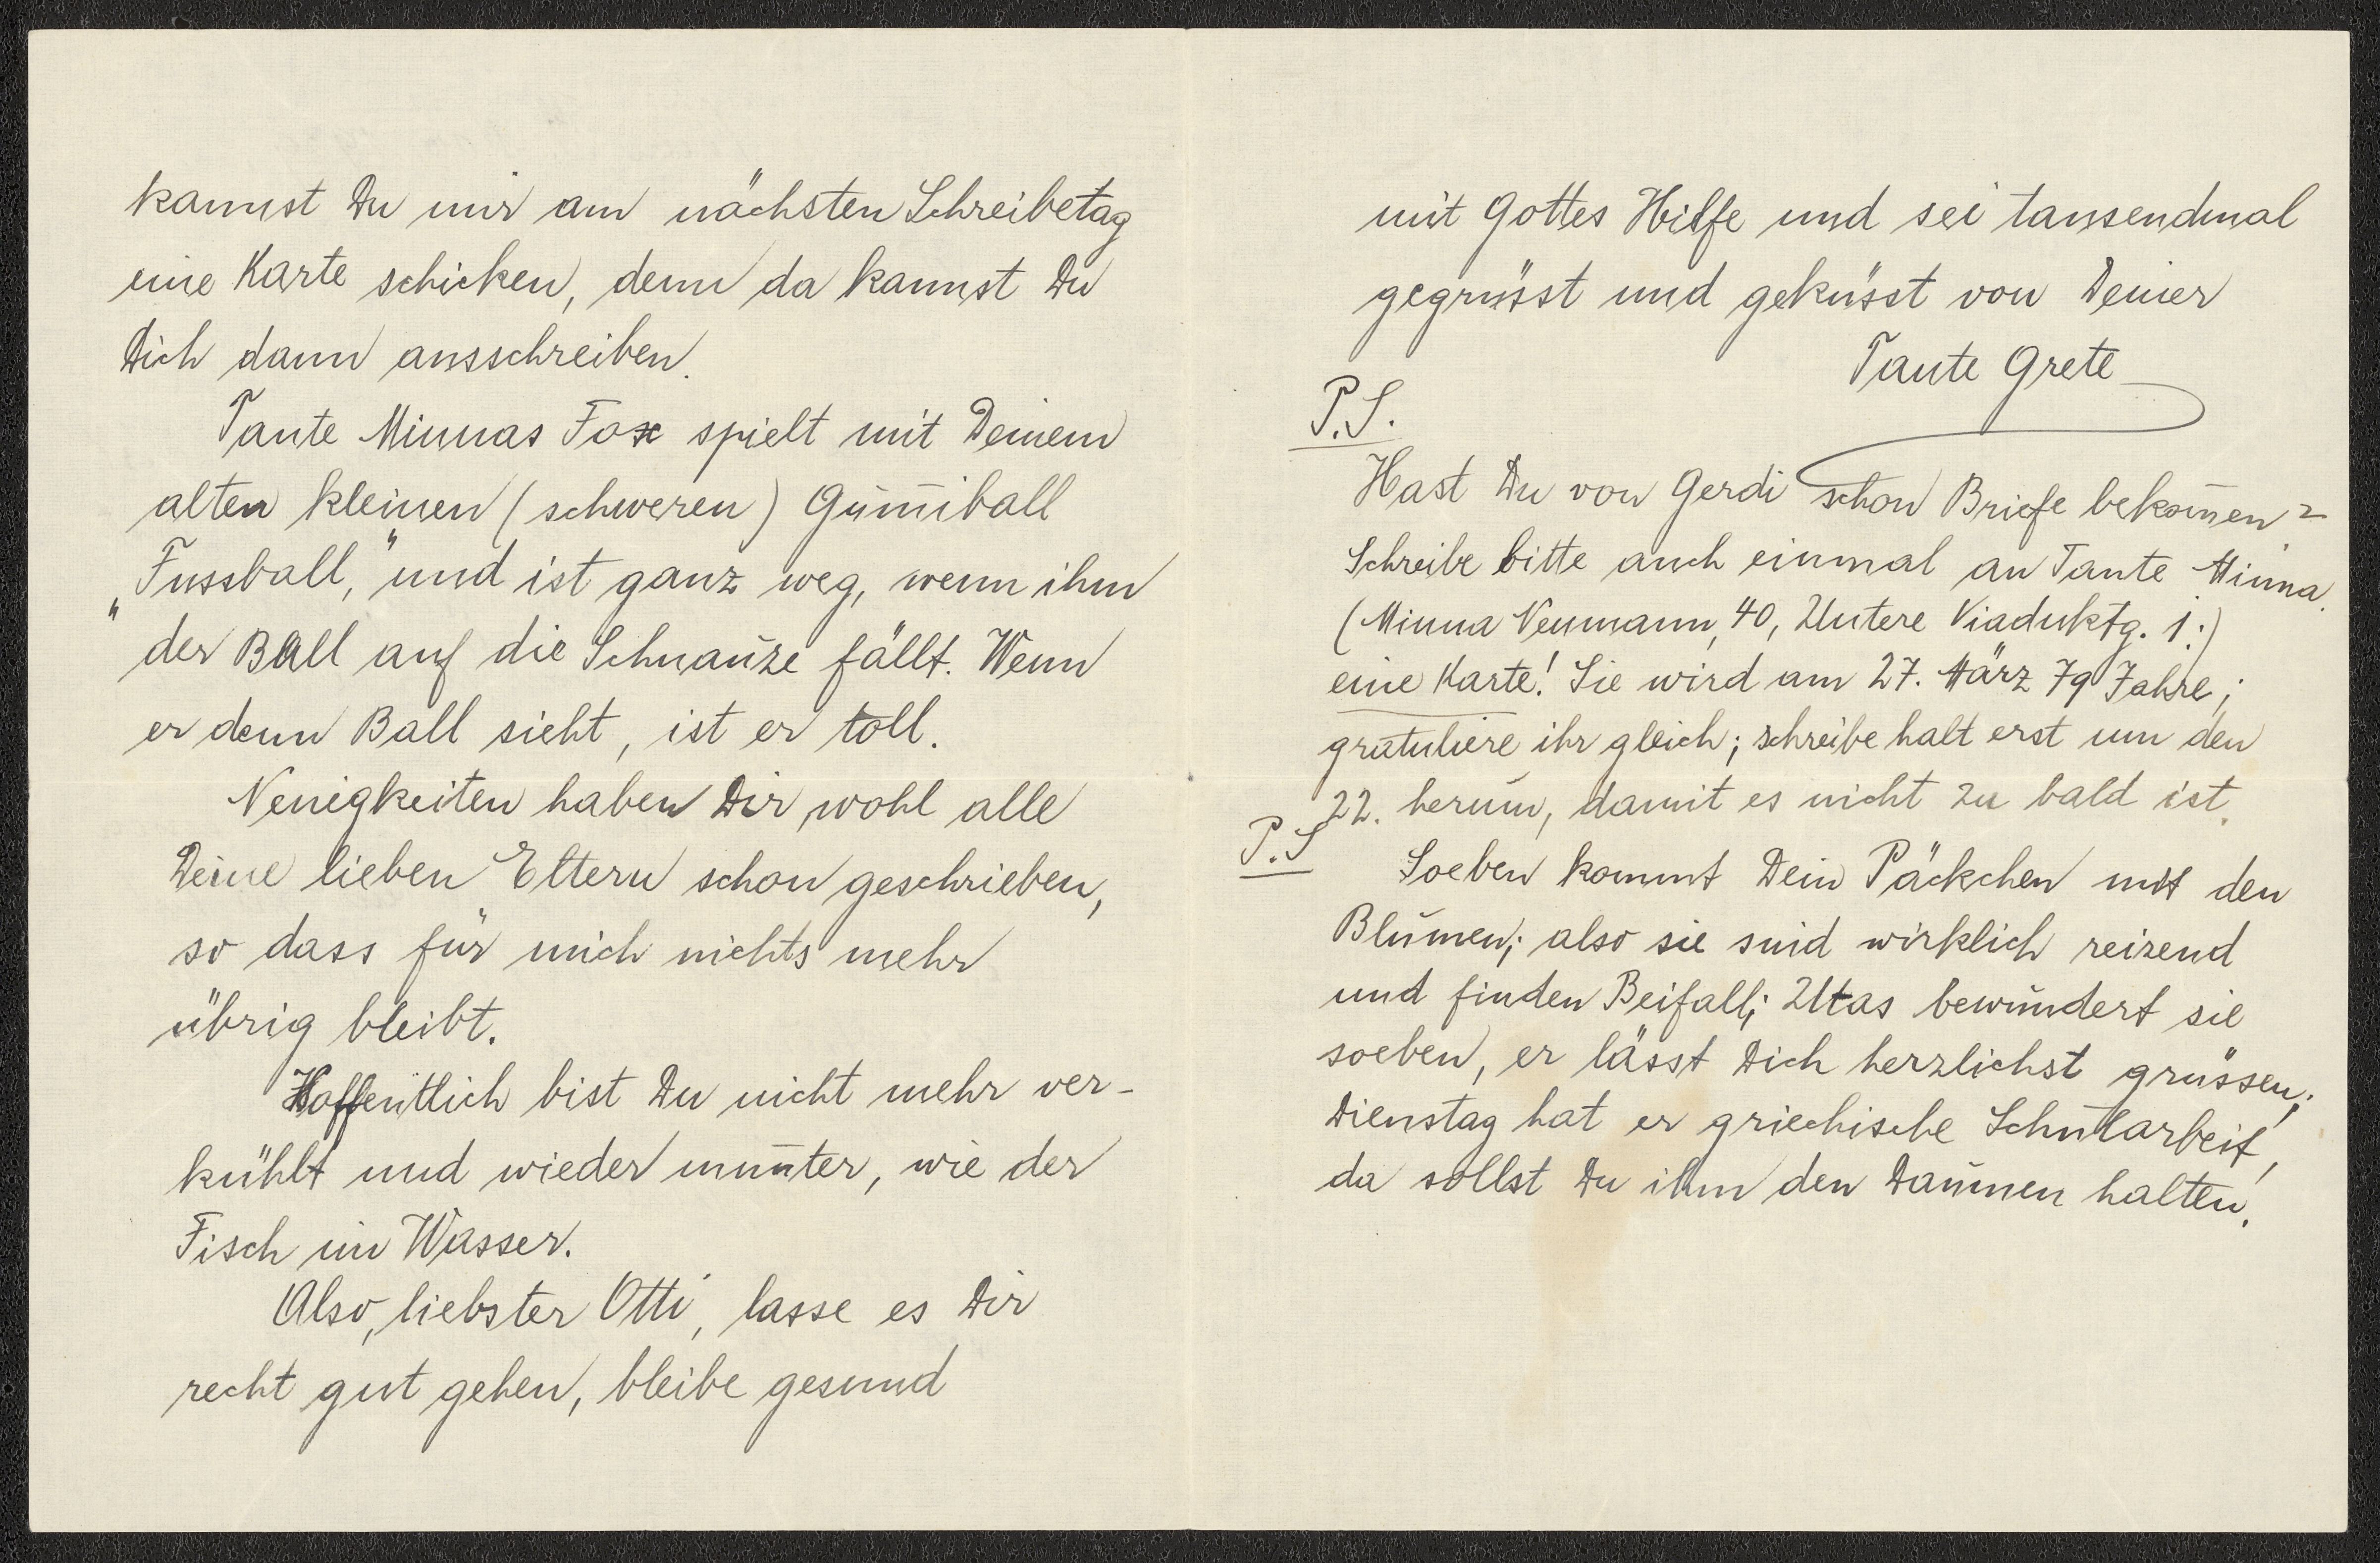 kannst Du mir am nächsten Schreibetag
eine Karte schicken, denn da kannst Du
Dich dann ausschreiben.
Tante Minnas Fox spielt mit Deinem
alten kleinen (schweren) Gum̅iball
„Fussball," und ist ganz weg, wenn ihm
der Ball auf die Schnauze fällt. Wenn
er denn Ball sieht, ist er toll.
Neuigkeiten haben Dir wohl alle
Deine lieben Eltern schon geschrieben,
so dass für mich nichts mehr
übrig bleibt.
Hoffentlich bist Du nicht mehr ver-
kühlt und wieder munter, wie der
Fisch im Wasser.
Also, liebster Otti, lasse es Dir
recht gut gehen, bleibe gesund
mit Gottes Hilfe und sei tausendmal
gegrüsst und geküsst von Deiner
Tante Grete
P.S.
Hast Du von Gerdi schon Briefe bekom̅en?
Schreibe bitte auch einmal an Tante Minna.
(Minna Neumann, 40, Untere Viaduktg. 1.)
eine Karte! Sie wird am 27. März 79 Jahre;
gratuliere ihr gleich; schreibe halt erst um den
22. herum, damit es nicht zu bald ist.
P.S
Soeben kommt Dein Päckchen mit den
Blumen; also sie sind wirklich reizend
und finden Beifall; Utas bewundert sie
soeben, er lässt Dich herzlichst grüssen;
Dienstag hat er griechische Schularbeit,
da sollst Du ihm den Daumen halten.